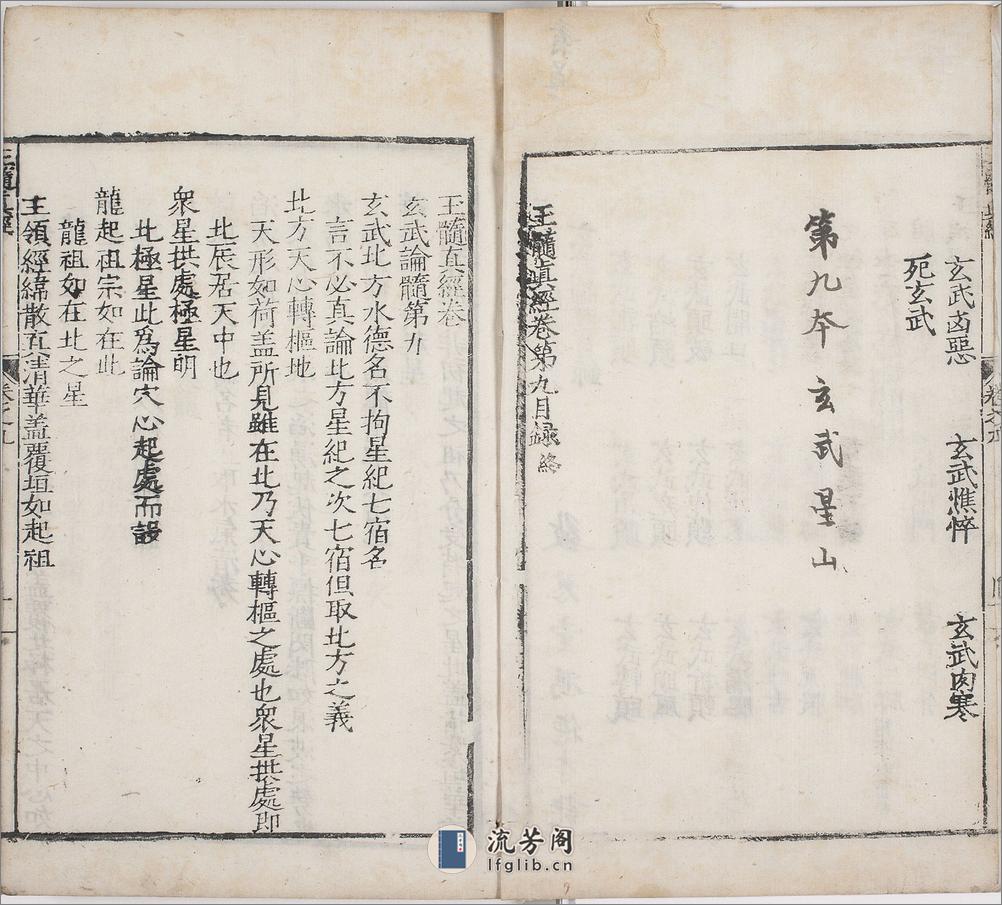 玄武凶惡 玄武憔悴 玄武肉寒
死玄武
第九本 玄武星山
玉髓真經卷第九目録終
玉髓真經卷
玄武論髓第九
玄武北方水德名不拘星紀七宿名
言不必真論北方星紀之次七宿但取北方之義
北方天心轉樞地
天形如荷盖所見雖在北乃天心轉樞之處也衆星拱處即
北辰居天中也
衆星拱處極星明
北極星此爲論穴心起處而設
龍起祖宗如在此
龍祖如在北之星
主領經緯散真清華盖覆垣如起祖
玉髓真經
卷之九
流芳阁
lfglib.cn